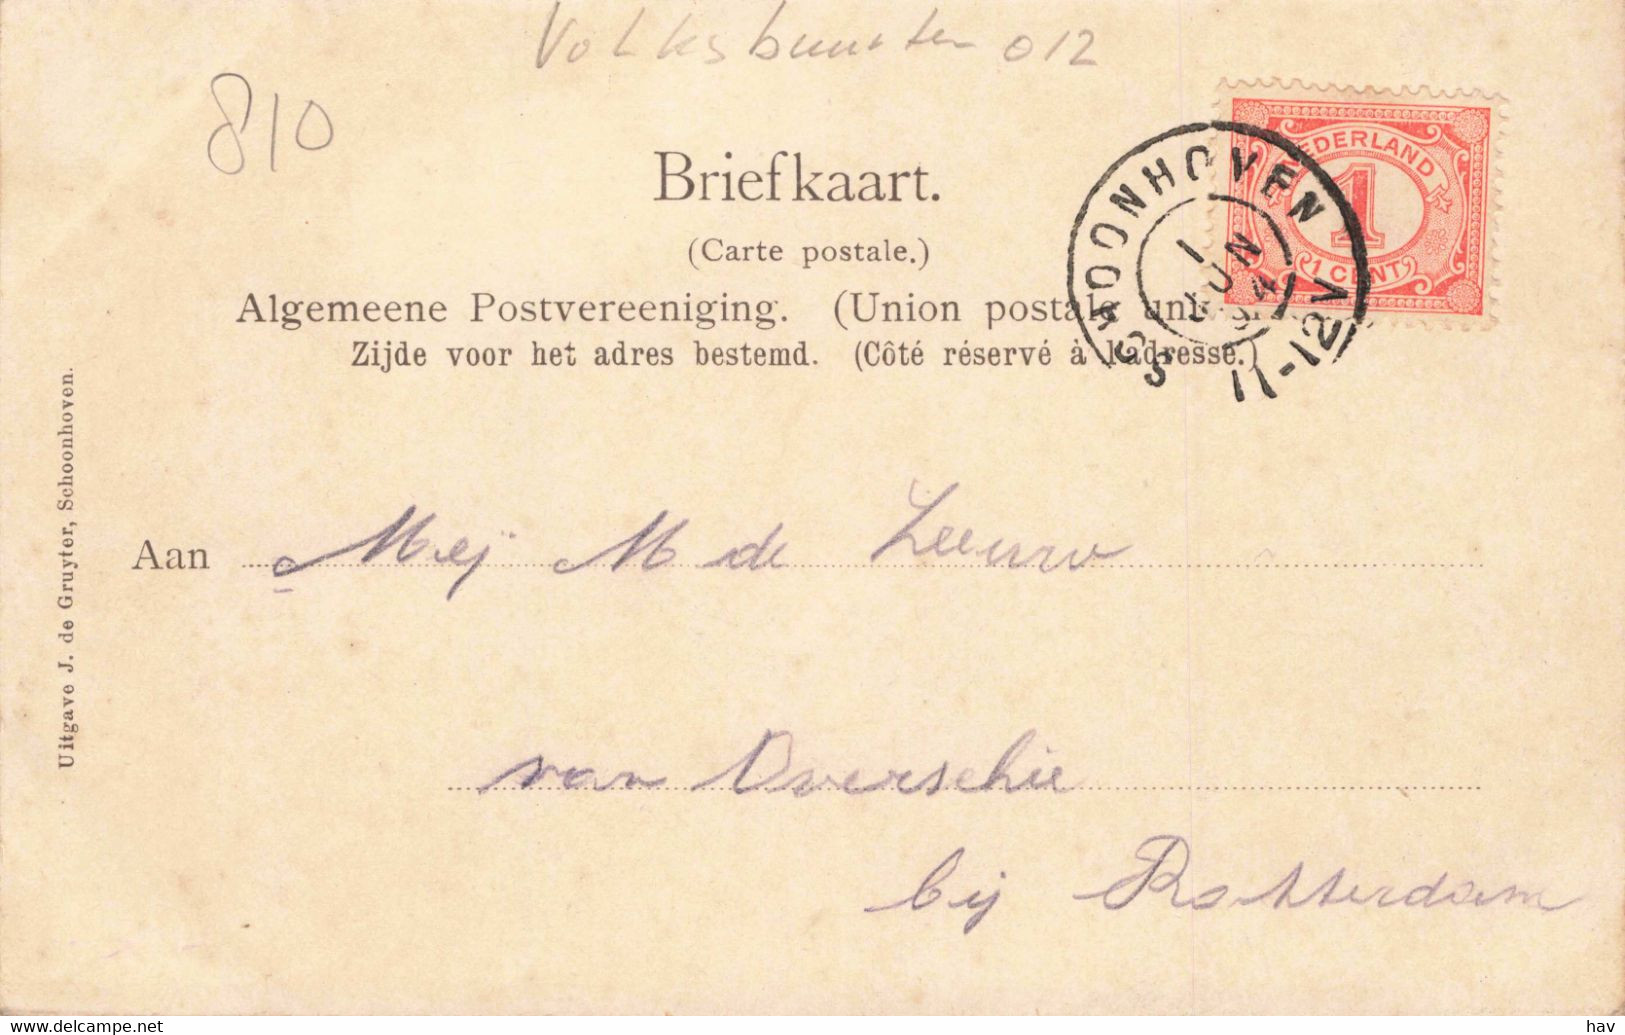 Volksbuurten 012
810
Briefkaart.
(Carte postale.)
Algemeene Postvereeniging. (Union postale univ
Zijde voor het adres bestemd. (Côté réservé à l'adresse.)
NEDERLAND
1
1 CENT
SCHOONHOVEN
1
JUN
04
11-12V
Uitgave J. de Gruyter, Schoonhoven.
Aan Mej M de Leeuw
van Overschie
bij Rotterdam
www.delcampe.net
hav